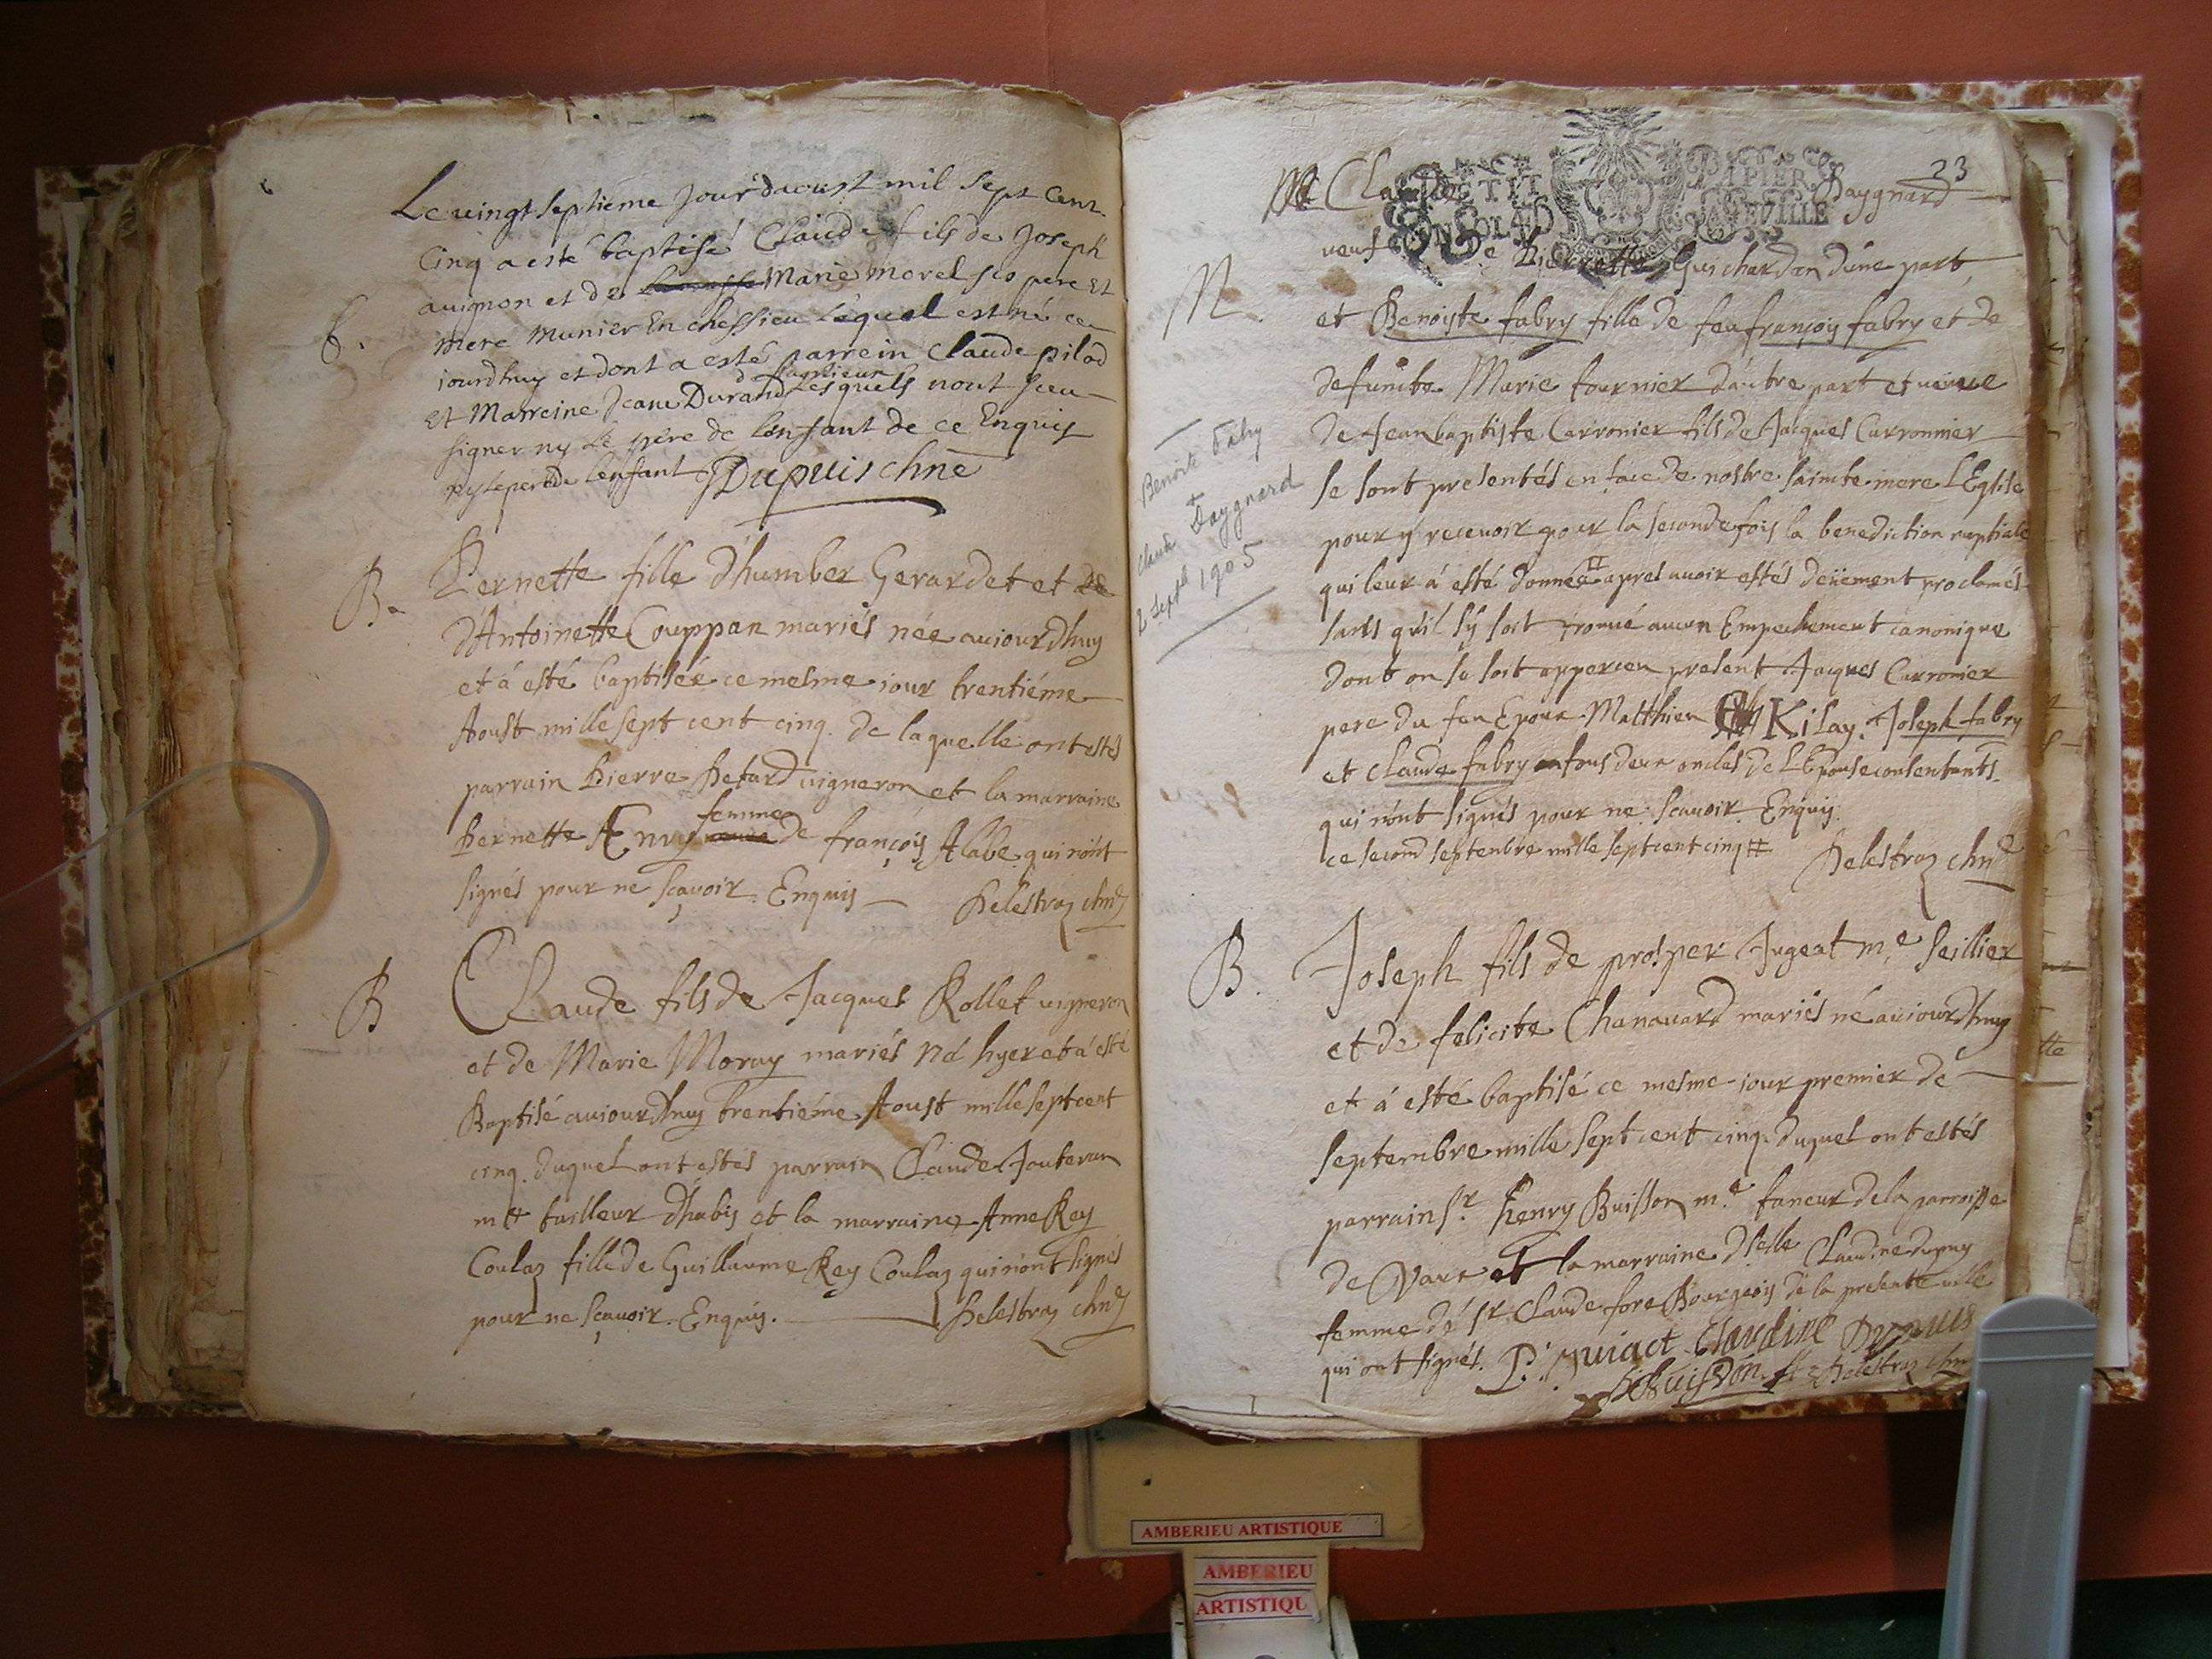 Le vingt septieme Jour daoust mil sept cent
Cinq a esté baptisé Claude fils de Joseph
avignon et de Marie morel ses pere et
B.
mere munier En chessieu lequel est né ce
jourdhuy et dont a esté parrein Claude pilod
et Marreine Jeane Durand Lesquels nont sceu
signer ny Le pere de lenfant de ce Enquis
ny le pere de lenfant Dupuis chne
B.
Pernette fille d'humber Gerardet et de
d'Antoinette Couppan mariés née auiourdhuy
et á esté baptisée ce mesme iour trentiéme
Aoust mille sept cent cinq. de laquelle ont estés
parrain Pierre Petard vigneron et la marraine
femme
Pernette de françois Alabe qui n'ont
signés pour ne sçavoir. Enquis Delestraz chne
B
Claude fils de Jacques Rollet vigneron
et de Marie Moray mariés né hyer et á esté
Baptisé auiourdhuy trentiéme Aoust mille sept cent
cinq. duquel ont estés parrain Claude Jouteran
mtre tailleur d'habis et la marraine Anne Rey
Coulaz fille de Guillaume Rey Coulaz qui n'ont signés
pour ne sçavoir. Enquis. Delestraz chne
23
PETIT PAPIER
Baygnard
UN SOL 4 D
veuf de Pierrette Guichardan d'une part,
M.
et Benoiste fabry fille de feu françois fabry et de
defuncte Marie tournier d'autre part et veuve
de Jean baptiste Carronier fils de Jacques Carronnier
se sont presentés en face de nostre saincte mere L'Eglise
pour y recevoir pour la seconde fois la benediction nuptiale
qui leur á esté donnée apres avoir estés deüement proclamés
sans qu'il s'y soit trouvé aucun Empechement canonique
dont on se soit apperceu present Jacques Carronier
pere du feu Epoux Matthieu Kilay. Joseph fabry
et Claude fabry tous deux oncles de L'Epouse consentants
qui n'ont signés pour ne scavoir. Enquis.
ce second septenbre mille sept cent cinq Delestraz chne
Benoite Fabry
claude Daygnard
2 Sept 1705
B.
Joseph fils de prosper Jugeat me seillier
et de felicite Chanavard mariés né auiourdhuy
et á esté baptisé ce mesme iour premier de
septembre mille sept cent cinq. duquel ont estés
parrain sr. henry Buisson me. taneur de la parroisse
de Vaux et la marraine dselle Claudine dupuy
femme de sr Claude fore Bourgeois de la presente ville
qui ont signés. Claudine Dupuis
hBuisson Delestraz chne
AMBERIEU ARTISTIQUE
AMBERIEU
ARTISTIQU